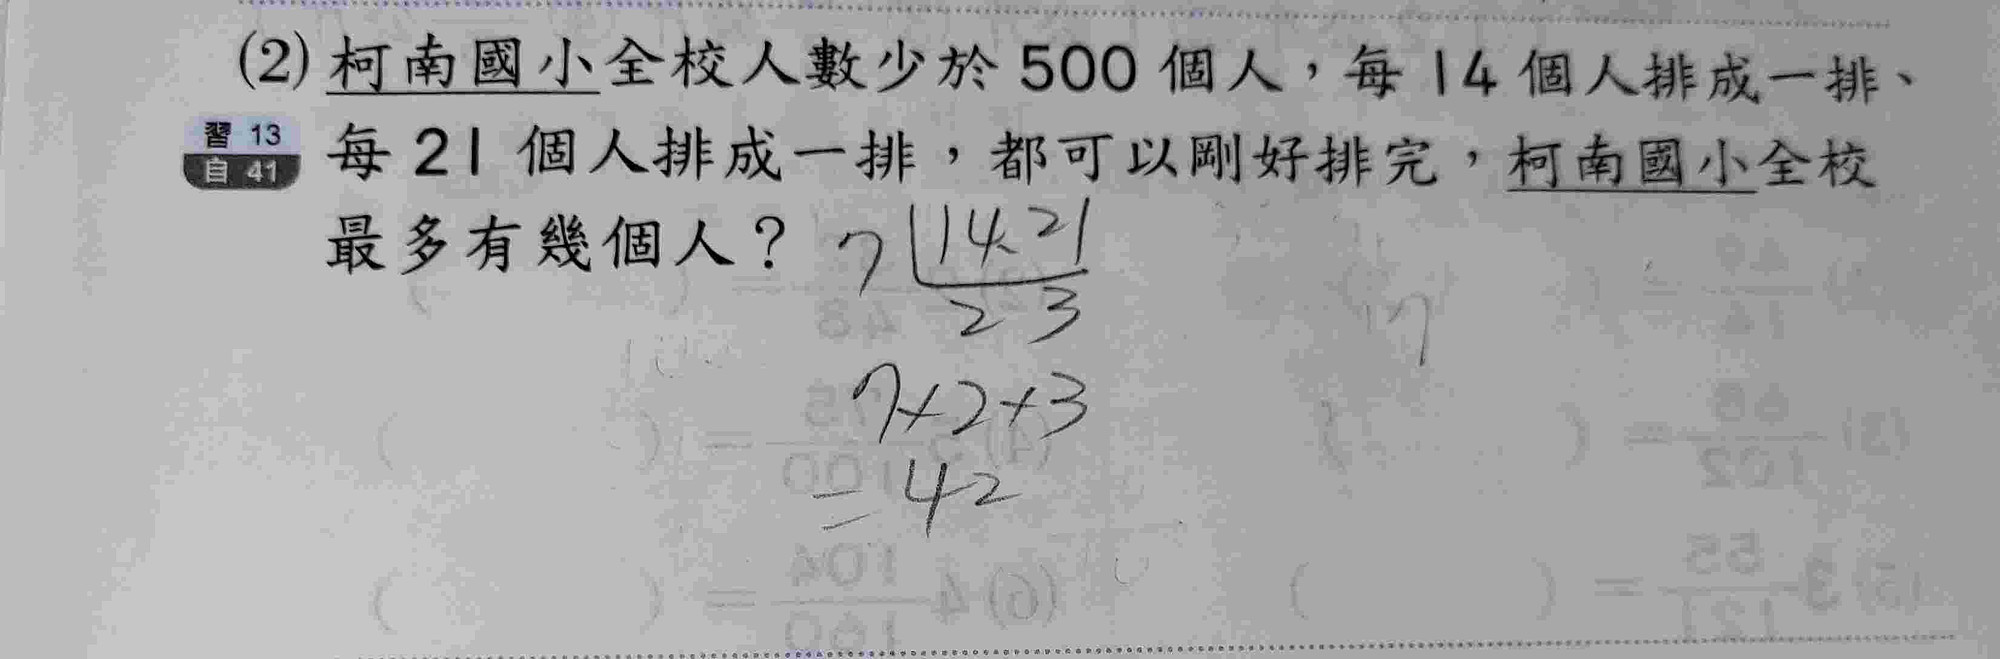 (2) 柯南國小全校人數少於 500 個人，每 14 個人排成一排、
習 13
自 41
每 21 個人排成一排，都可以剛好排完，柯南國小全校
最多有幾個人？
7 14、21
2 3
7×2×3
= 42